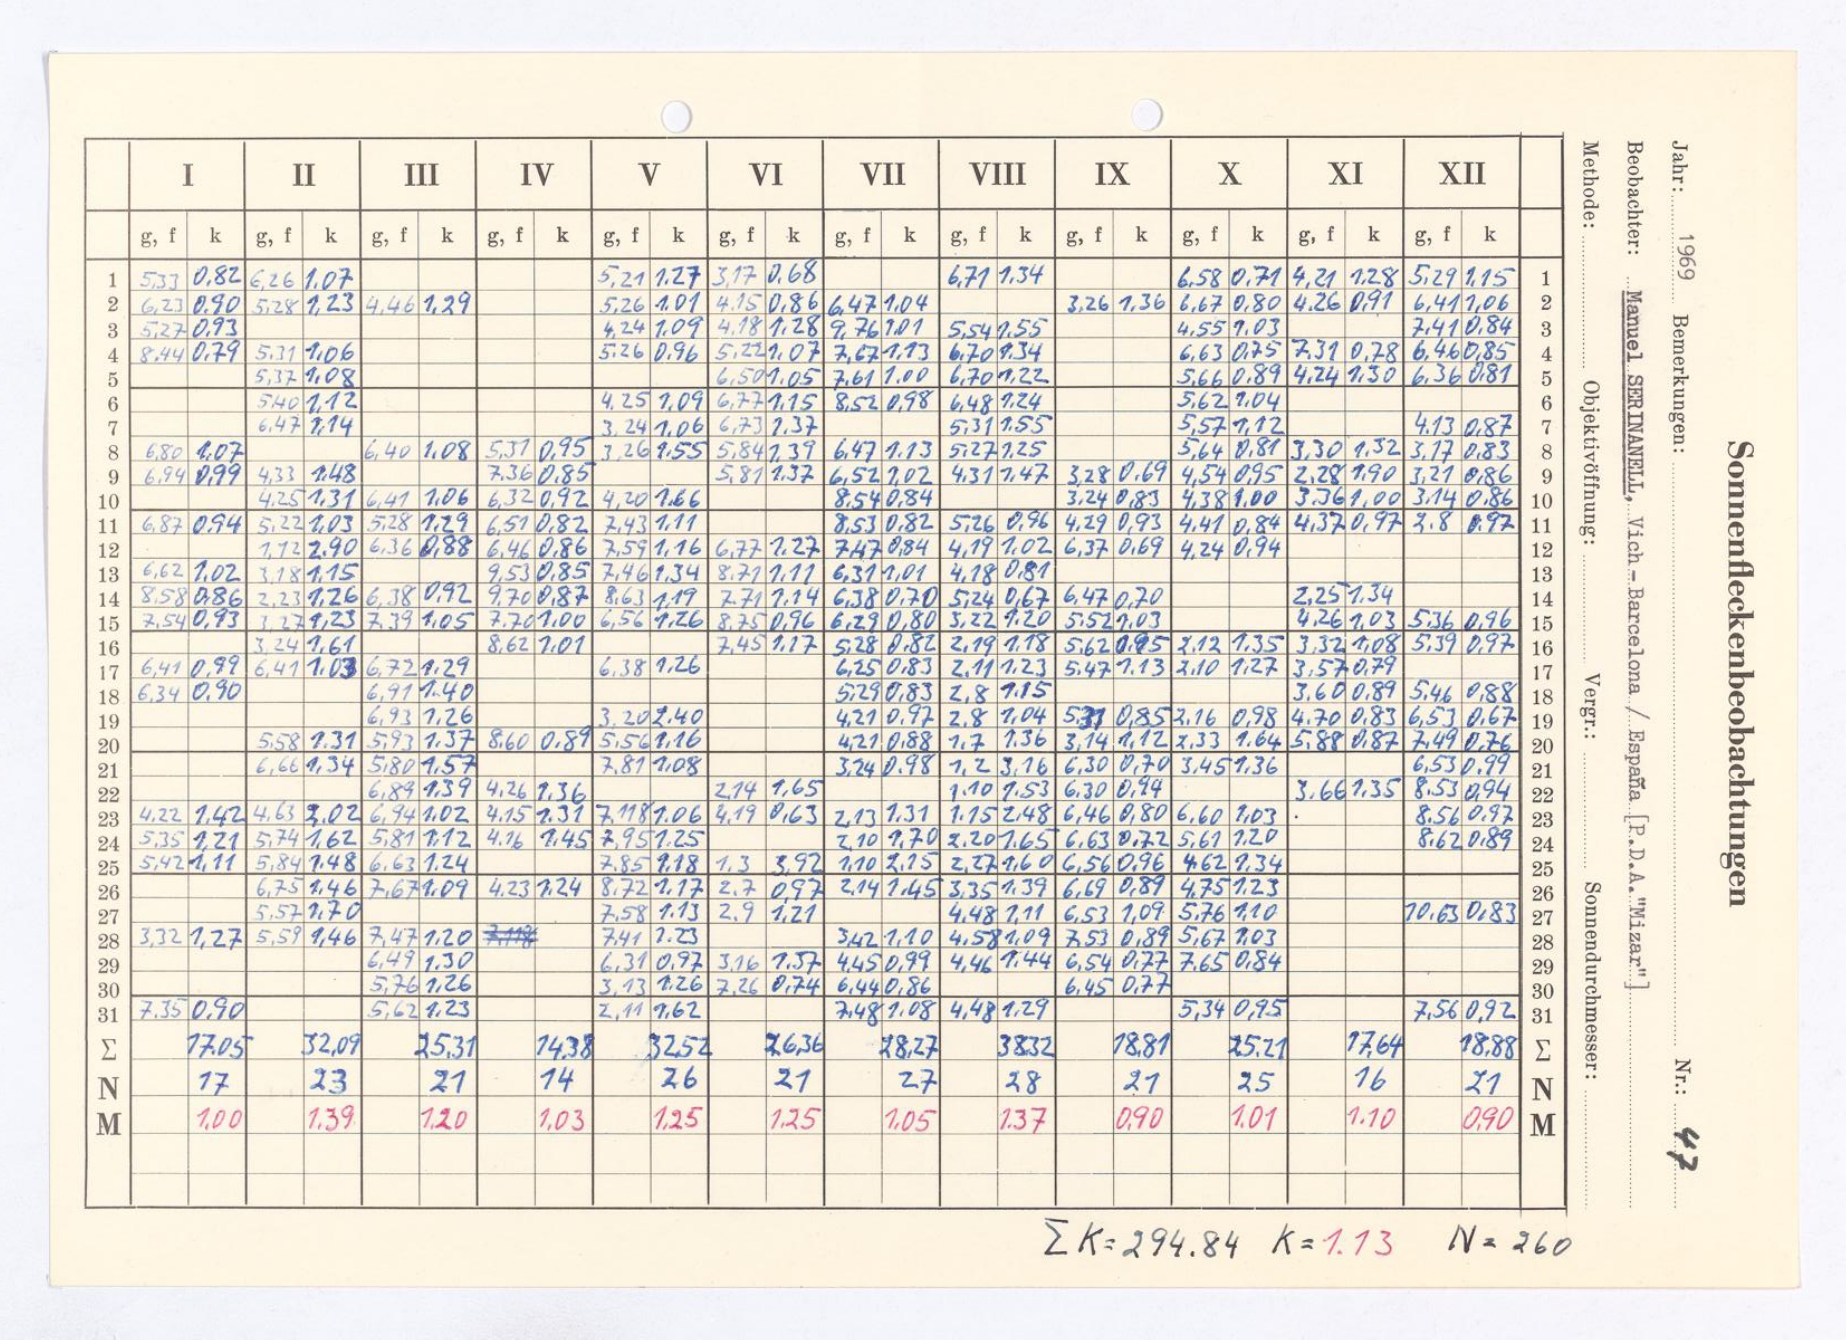 Sonnenfleckenbeobachtungen
Jahr: 1969 Bemerkungen: Nr.: 47
Beobachter: Manuel SERINANELL, Vich-Barcelona / España [P.D.A."Mizar"]
Methode: Objektivöffnung: Vergr.: Sonnendurchmesser:
I II III IV V VI VII VIII IX X XI XII
g, f k g, f k g, f k g, f k g, f k g, f k g, f k g, f k g, f k g, f k g, f k g, f k
1 5,33 0,82 6,26 1.07 5,21 1.27 3,17 0,68 6,71 1.34 6,58 0,71 4,21 1,28 5,29 1,15 1
2 6,23 0.90 5,28 1,23 4,46 1,29 5,26 1.01 4.15 0,86 6,47 1,04 3,26 1,36 6,67 0,80 4.26 0,91 6,41 1,06 2
3 5,27 0,93 4,24 1.09 4,18 1.28 9,76 1.01 5,54 1.55 4,55 1,03 7.41 0,84 3
4 8,44 0,79 5,31 1,06 5,26 0,96 5,22 1,07 7,67 1,13 6,70 1.34 6,63 0,75 7,31 0,78 6,46 0,85 4
5 5,37 1,08 6,50 1.05 7,61 1.00 6,70 1,22 5,66 0,89 4,24 1,30 6,36 0,81 5
6 5,40 1,12 4,25 1,09 6,77 1.15 8,52 0,98 6,48 1.24 5,62 1.04 6
7 6,47 1,14 3,24 1,06 6,73 1.37 5,31 1.55 5,57 1,12 4.13 0,87 7
8 6,80 1,07 6,40 1.08 5,31 0,95 3,26 1.55 5,84 1,39 6,47 1,13 5,27 1,25 5,64 0,81 3,30 1.32 3,17 0,83 8
9 6,94 0,99 4,33 1.48 7,36 0,85 5,81 1.37 6,52 1,02 4,31 1.47 3,28 0,69 4,54 0,95 2,28 1,90 3,21 0,86 9
10 4.25 1.31 6,41 1,06 6,32 0,92 4,20 1.66 8,54 0,84 3,24 0,83 4,38 1.00 3.36 1,00 3,14 0,86 10
11 6,87 0,94 5,22 1.03 5,28 1,29 6,51 0,82 7,43 1.11 8,53 0,82 5,26 0,96 4,29 0,93 4,41 0,84 4,37 0,97 2.8 0.97 11
12 1,12 2.90 6,36 0,88 6,46 0,86 7,59 1,16 6,77 1.27 7,47 0,84 4,19 1.02 6,37 0,69 4,24 0,94 12
13 6,62 1,02 3,18 1,15 9,53 0,85 7,46 1,34 8,71 1.11 6,31 1,01 4,18 0,81 13
14 8,58 0,86 2,23 1,26 6,38 0,92 9,70 0,87 8,63 1,19 7.71 1,14 6,38 0,70 5,24 0,67 6,47 0,70 2,25 1.34 14
15 7,54 0,93 3,27 1,23 7,39 1.05 7,70 1.00 6,56 1.26 8,75 0,96 6,29 0,80 3,22 1.20 5,52 1,03 4,26 1,03 5,36 0,96 15
16 3,24 1,61 8,62 1,01 7,45 1.17 5,28 0,82 2.19 1.18 5,62 0.95 2,12 1,35 3,32 1,08 5,39 0,97 16
17 6,41 0,99 6,41 1.03 6,72 1.29 6,38 1.26 6,25 0,83 2.11 1.23 5,47 1.13 2,10 1.27 3,57 0,79 17
18 6,34 0,90 6,91 1.40 5,29 0,83 2,8 1.15 3,60 0,89 5,46 0,88 18
19 6,93 1,26 3,20 2.40 4,21 0,97 2.8 1,04 5,31 0,85 2,16 0,98 4.70 0,83 6,53 0,67 19
20 5,58 1.31 5,93 1.37 8,60 0,89 5,56 1,16 4,21 0,88 1.7 1.36 3,14 1,12 2,33 1.64 5,88 0,87 7,49 0,76 20
21 6,66 1,34 5,80 1,57 7,81 1,08 3,24 0.98 1,2 3,16 6,30 0,70 3,45 1.36 6,53 0,99 21
22 6,89 1.39 4,26 1.36 2,14 1,65 1.10 1.53 6,30 0,94 3.66 1.35 8.53 0,94 22
23 4.22 1,42 4,63 2,02 6,94 1.02 4,15 1.31 7,118 1.06 4,19 0,63 2,13 1.31 1.15 2.48 6,46 0,80 6,60 1,03 8.56 0,97 23
24 5,35 1,21 5,74 1,62 5,81 1.12 4.16 1.45 7,95 1.25 2,10 1,70 2.20 1.65 6,63 0,72 5,61 1.20 8,62 0,89 24
25 5,42 1,11 5,84 1.48 6,63 1.24 7.85 1.18 1.3 3,92 1,10 2,15 2,27 1.60 6,56 0,96 4.62 1.34 25
26 6,75 1.46 7,67 1.09 4.23 1.24 8,72 1.17 2.7 0,97 2,14 1.45 3,35 1.39 6,69 0,89 4,75 1.23 26
27 5,57 1,70 7,58 1.13 2.9 1,21 4,48 1,11 6,53 1,09 5,76 1,10 10.63 0,83 27
28 3,32 1,27 5,59 1,46 7,47 1.20 7,118 7,41 1.23 3,42 1,10 4,58 1,09 7,53 0,89 5,67 1.03 28
29 6,49 1,30 6,31 0,97 3,16 1.37 4,45 0,99 4,46 1.44 6,54 0,77 7,65 0,84 29
30 5,76 1.26 3,13 1.26 7,26 0,74 6,44 0,86 6,45 0,77 30
31 7,35 0,90 5,62 1.23 2,11 1,62 7,48 1.08 4,48 1.29 5,34 0,95 7,56 0,92 31
Σ 17.05 32,09 25,31 14,38 32,52 26,36 28,27 38.32 18,81 25.21 17,64 18,88 Σ
N 17 23 21 14 26 21 27 28 21 25 16 21 N
M 1.00 1.39 1.20 1,03 1.25 1.25 1.05 1.37 0,90 1.01 1.10 0,90 M
ΣK=294.84 K=1.13 N=260